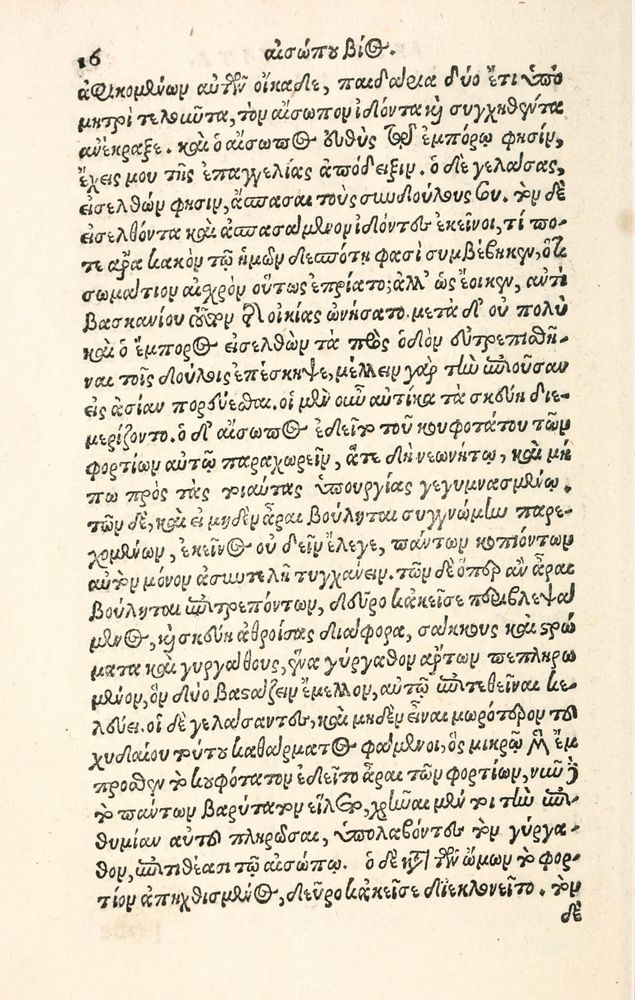 16 αἰσώπου βίος.
ἀφικομένων αὐτῶν οἴκαδε, παιδάρια δύο ἔτι ὑπὸ
μητρὶ τελοῦντα, τὸν αἴσωπον ἰδόντα καὶ συγχηθέντα
ἀνέκραξε. καὶ ὁ αἴσωπος εὐθὺς τῷ ἐμπόρῳ φησίν,
ἔχεις μου τῆς ἐπαγγελίας ἀπόδειξιν. ὁ δὲ γελάσας,
εἰσελθών φησιν, ἄσπασαι τοὺς συνδούλους σου. τὸν δὲ
εἰσελθόντα καὶ ἀσπασάμενον ἰδόντες ἐκεῖνοι, τί πο-
τε ἄρα κακὸν τῷ ἡμῶν δεσπότῃ φασὶ συμβέβηκεν, ὅτι
σωμάτιον αἰσχρὸν οὕτως ἐπρίατο; ἀλλ' ὡς ἔοικεν, ἀντὶ
βασκανίου τοῦτον τῆς οἰκίας ὠνήσατο. μετὰ δ' οὐ πολὺ
καὶ ὁ ἔμπορος εἰσελθὼν τὰ πρὸς ὁδὸν εὐτρεπισθῆ-
ναι τοῖς δούλοις ἐπέσκηψε, μέλλειν γὰρ τὴν ἐπιοῦσαν
εἰς ἀσίαν πορεύεσθαι. οἱ μὲν οὖν αὐτίκα τὰ σκεύη διε-
μερίζοντο. ὁ δ' αἴσωπος ἐδεῖτο τοῦ κουφοτάτου τῶν
φορτίων αὐτῷ παραχωρεῖν, ἅτε δὴ νεωνήτῳ, καὶ μή
πω πρὸς τὰς τοιαύτας ὑπουργίας γεγυμνασμένῳ.
τῶν δὲ, καὶ εἰ μηδὲν ἆραι βούληται συγγνώμην παρε-
χομένων, ἐκεῖνος οὐ δεῖν ἔλεγε, πάντων κοπιόντων
αὐτὸν μόνον ἀσυντελῆ τυγχάνειν. τῶν δὲ ὅπερ ἂν ἆραι
βούληται ἐπιτρεπόντων, δεῦρο κἀκεῖσε περιβλεψά
μενος, καὶ σκεύη ἀθροίσας διάφορα, σάκκους καὶ στρώ
ματα καὶ γυργάθους, ἕνα γύργαθον ἄρτων πεπληρω
μένον, ὃν δύο βαστάζειν ἔμελλον, αὐτῷ ἐπιτεθεῖναι κε-
λεύει. οἱ δὲ γελάσαντες, καὶ μηδὲν εἶναι μωρότερον τοῦ
χυδαίου τούτου καθάρματος φάμενοι, ὃς μικρῷ μὲν ἔμ
προσθεν τὸ κουφότατον ἐδεῖτο ἆραι τῶν φορτίων, νῦν δὲ
τὸ πάντων βαρύτατον εἵλετο, χρῆναι μέν τοι τὴν ἐπι-
θυμίαν αὐτοῦ πληρῶσαι, ὑπολαβόντες τὸν γύργα-
θον, ἐπιτιθέασι τῷ αἰσώπῳ. ὁ δὲ κατὰ τῶν ὤμων τὸ φορ-
τίον ἀπηχθισμένος, δεῦρο κἀκεῖσε διεκλονεῖτο. τὸν
δὲ